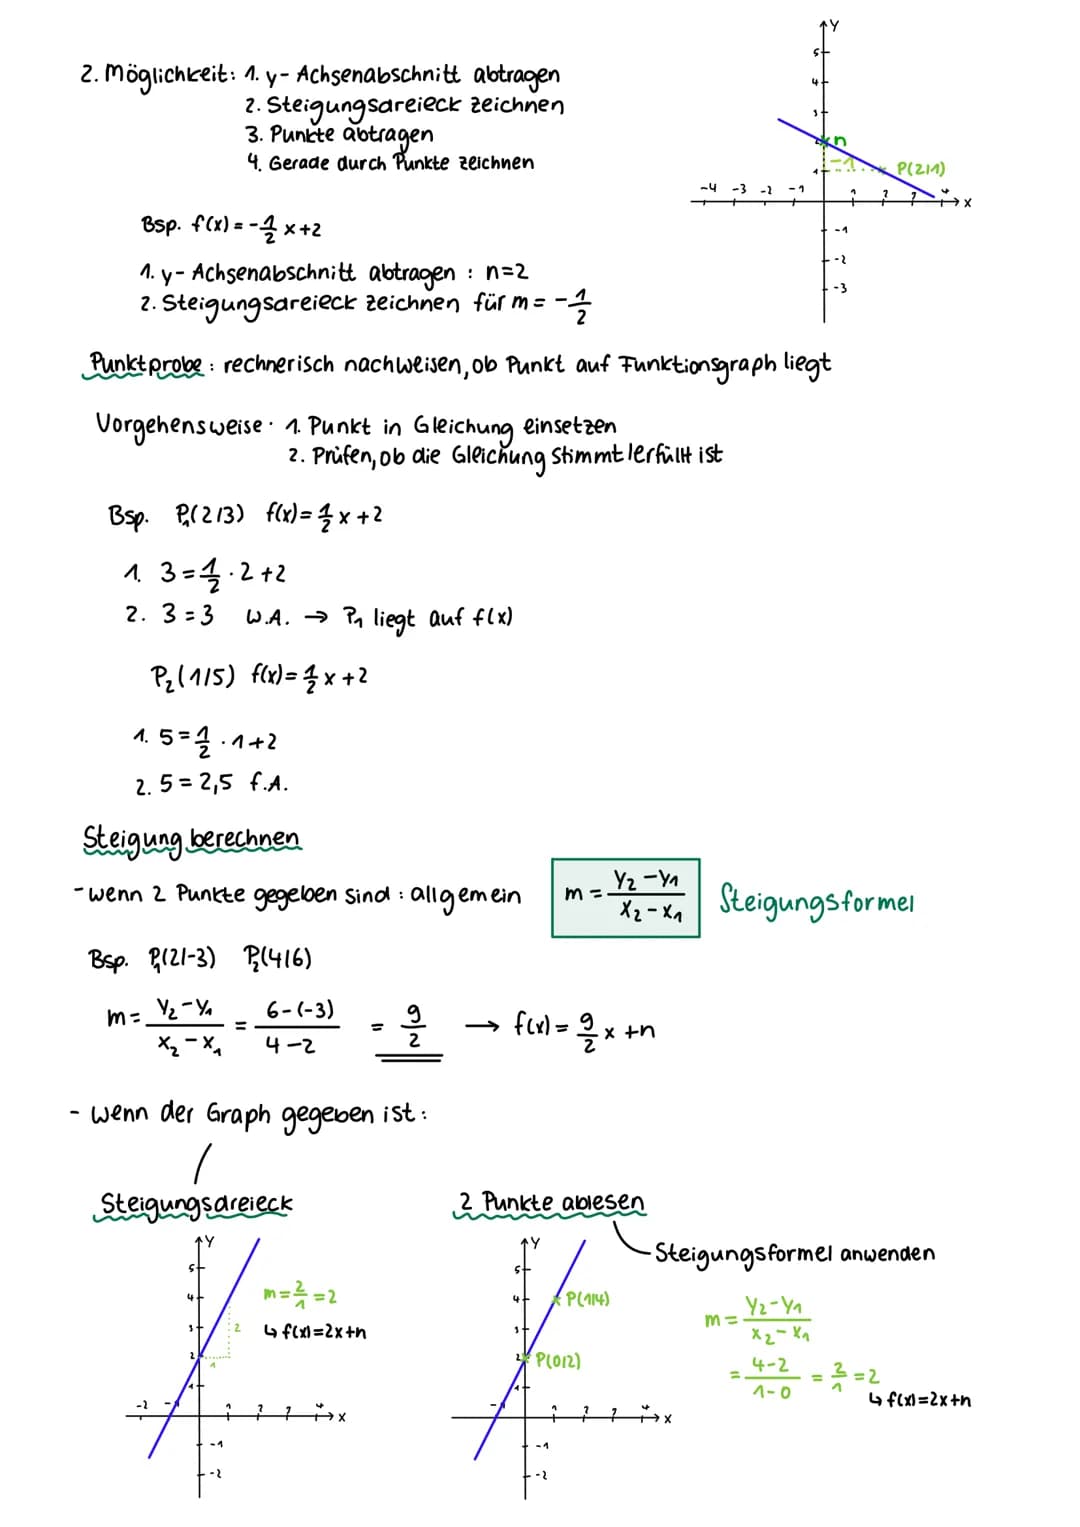 2. Möglichkeit: 1. y-Achsenabschnitt abtragen
2. Steigungsdreieck zeichnen
3. Punkte abtragen
4. Gerade durch Punkte zeichnen
y
5
4
3
n
-1
P(2|1)
1
-4 -3 -2 -1 1 2 3 4 x
-1
-2
-3
Bsp. f(x) = -1/2 x+2
1. y-Achsenabschnitt abtragen : n=2
2. Steigungsdreieck zeichnen für m = -1/2
Punktprobe : rechnerisch nachweisen, ob Punkt auf Funktionsgraph liegt
Vorgehensweise: 1. Punkt in Gleichung einsetzen
2. Prüfen, ob die Gleichung stimmt/erfüllt ist
Bsp. P₁(2|3) f(x) = 1/2 x +2
1. 3 = 1/2 · 2 +2
2. 3 = 3 w.A. → P₁ liegt auf f(x)
P₂(1|5) f(x) = 1/2 x +2
1. 5 = 1/2 · 1+2
2. 5 = 2,5 f.A.
Steigung berechnen
- wenn 2 Punkte gegeben sind : allgemein m = (y₂-y₁)/(x₂-x₁) Steigungsformel
Bsp. P₁(2|-3) P₂(4|6)
m = (y₂-y₁)/(x₂-x₁) = (6-(-3))/(4-2) = 9/2 → f(x) = 9/2 x +n
- wenn der Graph gegeben ist :
Steigungsdreieck
y
5
4
3
2
1
-2 - 1 2 3 4 x
-1
-2
2
1
m = 2/1 = 2
↳ f(x)=2x+n
2 Punkte ablesen
Steigungsformel anwenden
y
5
4
3
2
1
- 1 2 3 4 x
-1
-2
P(1|4)
P(0|2)
m = (y₂-y₁)/(x₂-x₁)
= (4-2)/(1-0) = 2/1 = 2
↳ f(x)=2x+n